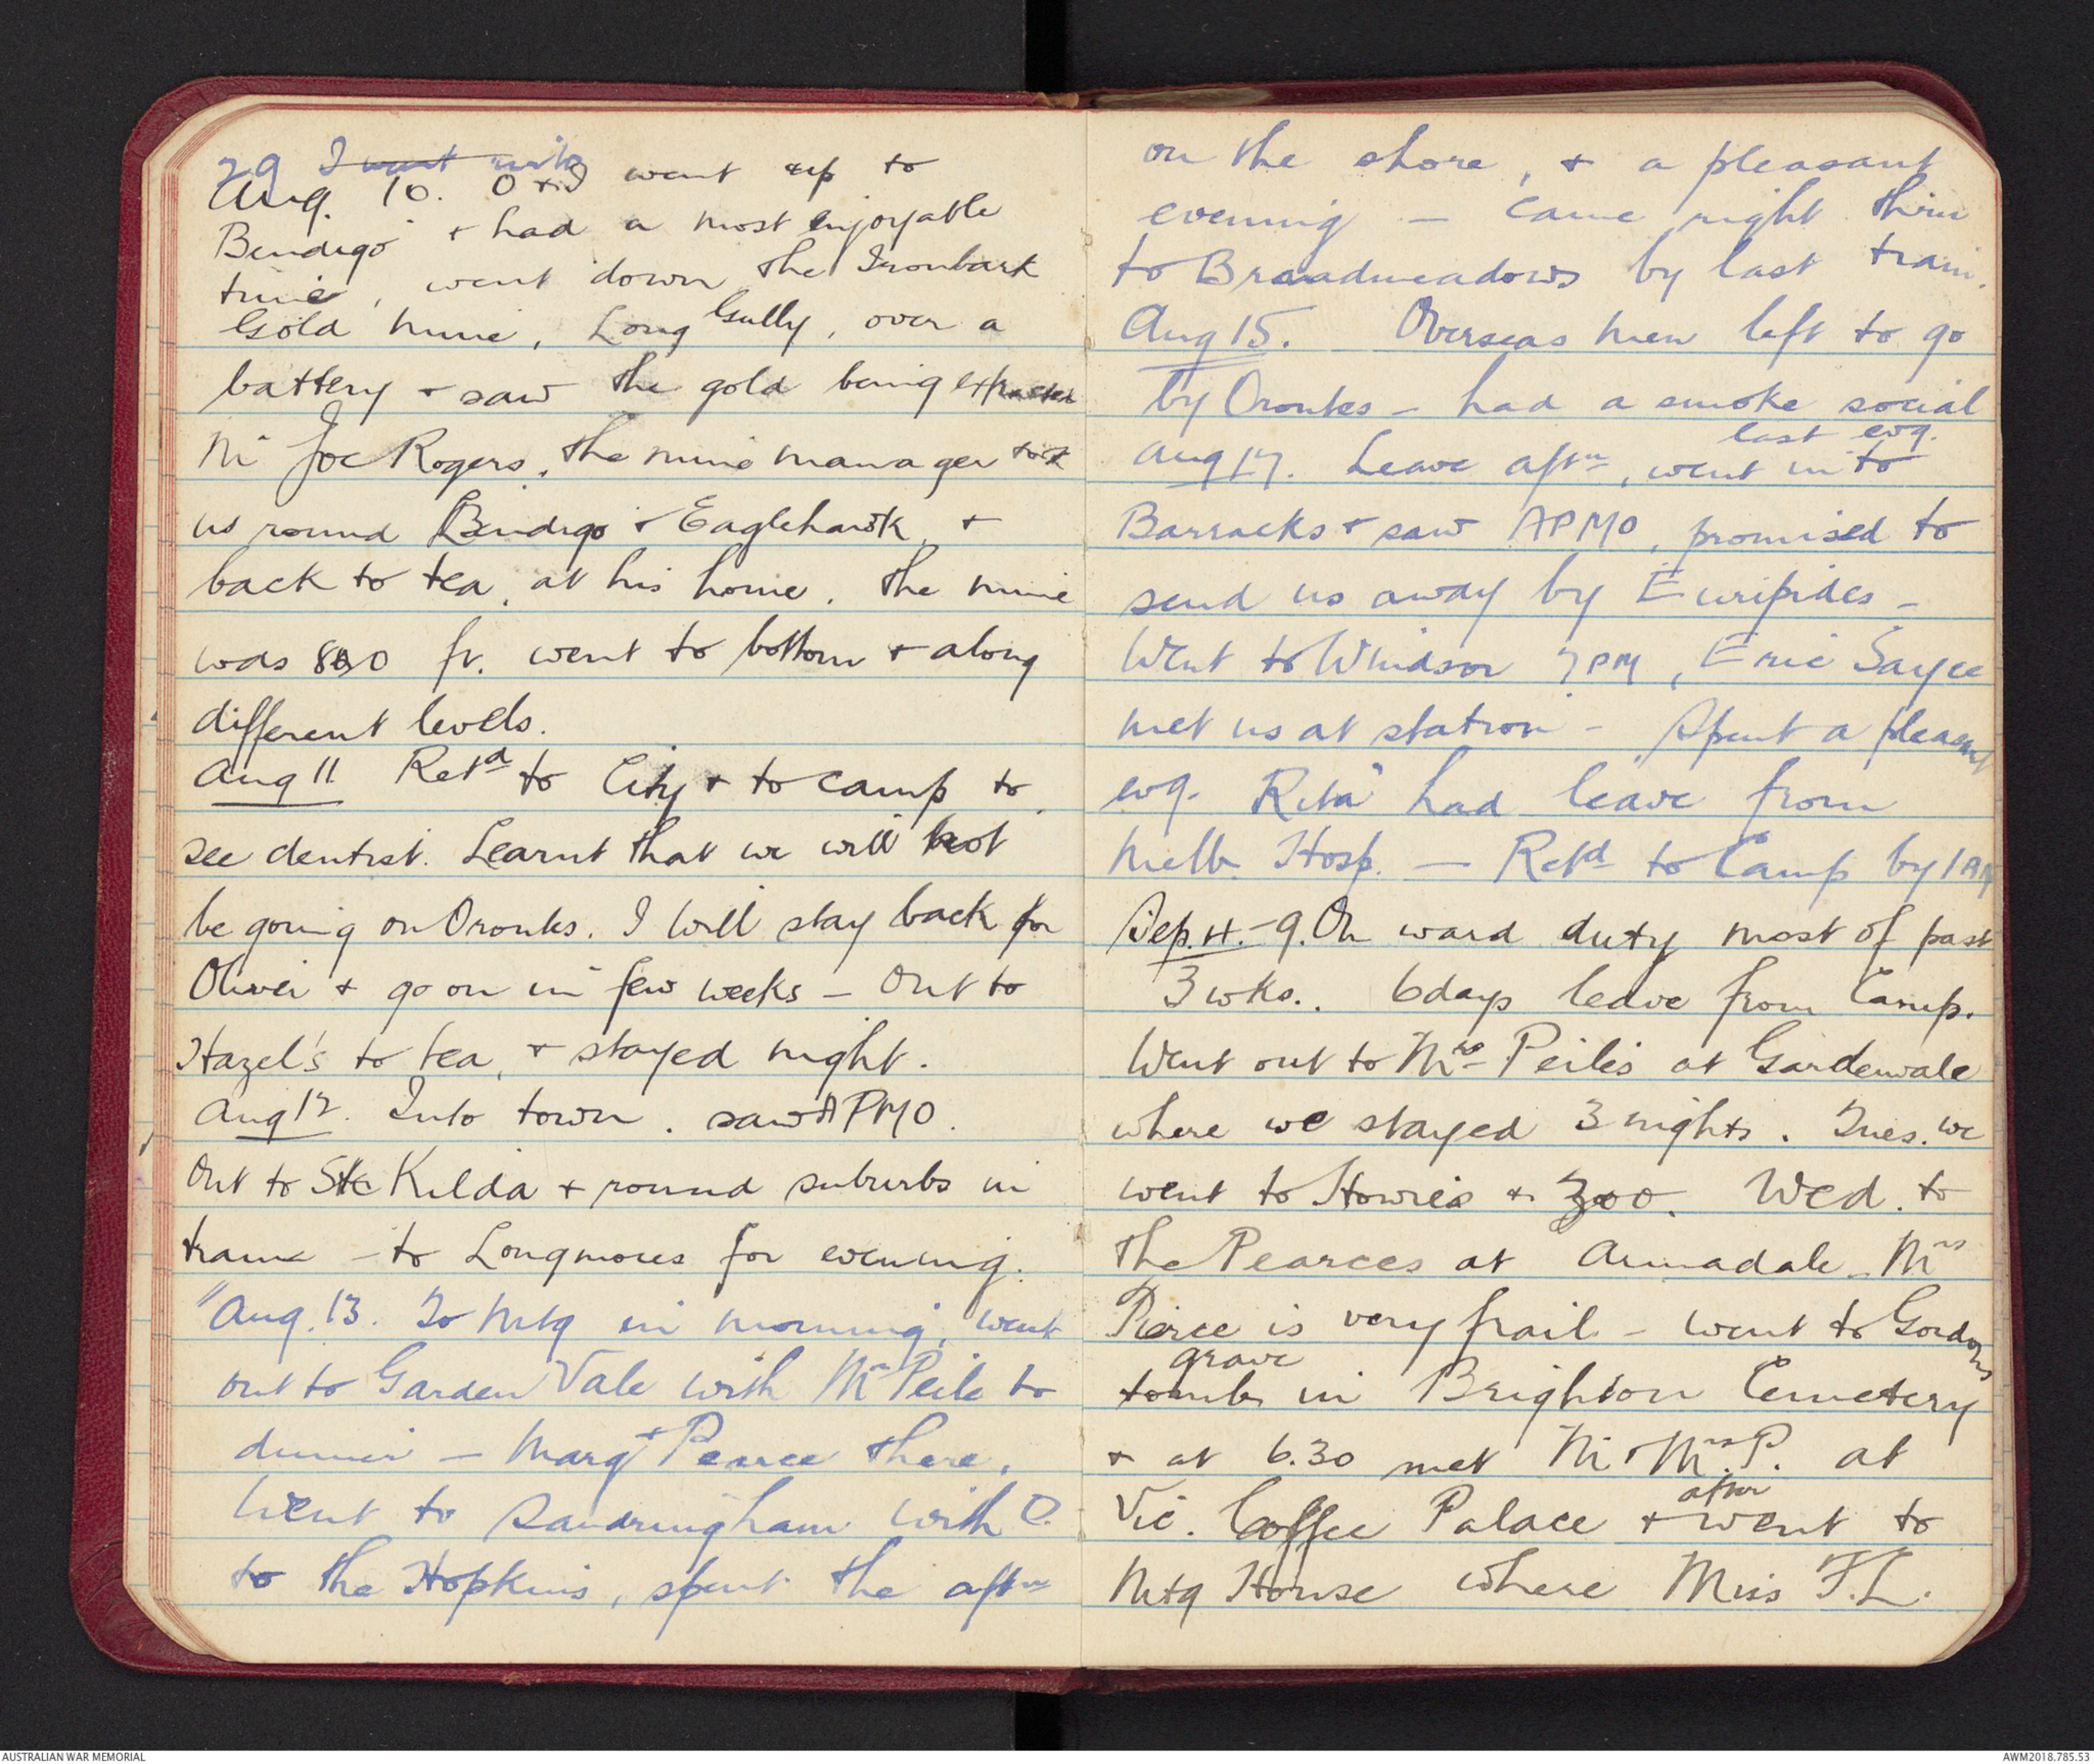 29 I want with
Aug. 10. O & I went up to
Bendigo & had a most enjoyable
time, went down the Ironbark
Gold mine, Long Gully, over a
battery & saw the gold being extracted
Mr Joe Rogers, the mine manager took
us round Bendigo & Eaglehawk, &
back to tea, at his home. The mine
was 800 ft. went to bottom & along
different levels.
Aug 11 Retd to City & to camp to
see dentist. Learnt that we will not
be going on Orontes. I will stay back for
Oliver & go on in few weeks - Out to
Hazel's to tea, & stayed night.
Aug 12. Into town. saw APMO.
Out to St Kilda & round suburbs in
trams - to Longmores for evening.
"Aug. 13. To Mtg in morning, went
out to Garden Vale with Mr Peile to
dinner - Margt Pearce there.
Went to Sandringham with O.
to the Hopkins, spent the aftn
on the shore, & a pleasant
evening - came right thru
to Broadmeadows by last train.
Aug 15. Overseas men left to go
by Orontes - had a smoke social
last evg.
Aug 17. Leave aftn, went in to
Barracks & saw APMO, promised to
send us away by Euripides -
Went to Windsor 7 PM, Eric Sayce
met us at station - Spent a pleasant
evg. Rita had leave from
Melb. Hosp. - Retd to Camp by 1 AM
Sep. 4. - 9. On ward duty most of past
3 wks.. 6 days leave from Camp.
Went out to Mrs Peile's at Gardenvale
where we stayed 3 nights. Tues. we
went to Howie's & Zoo. Wed. to
the Pearces at Armadale. Mrs
Pierce is very frail - went to Gordons
grave
tomb in Brighton Cemetery
& at 6.30 met Mr & Mrs. P. at
after
Vic. Coffee Palace & went to
Mtg House where Miss F.L.
AUSTRALIAN WAR MEMORIAL
AWM2018.785.53